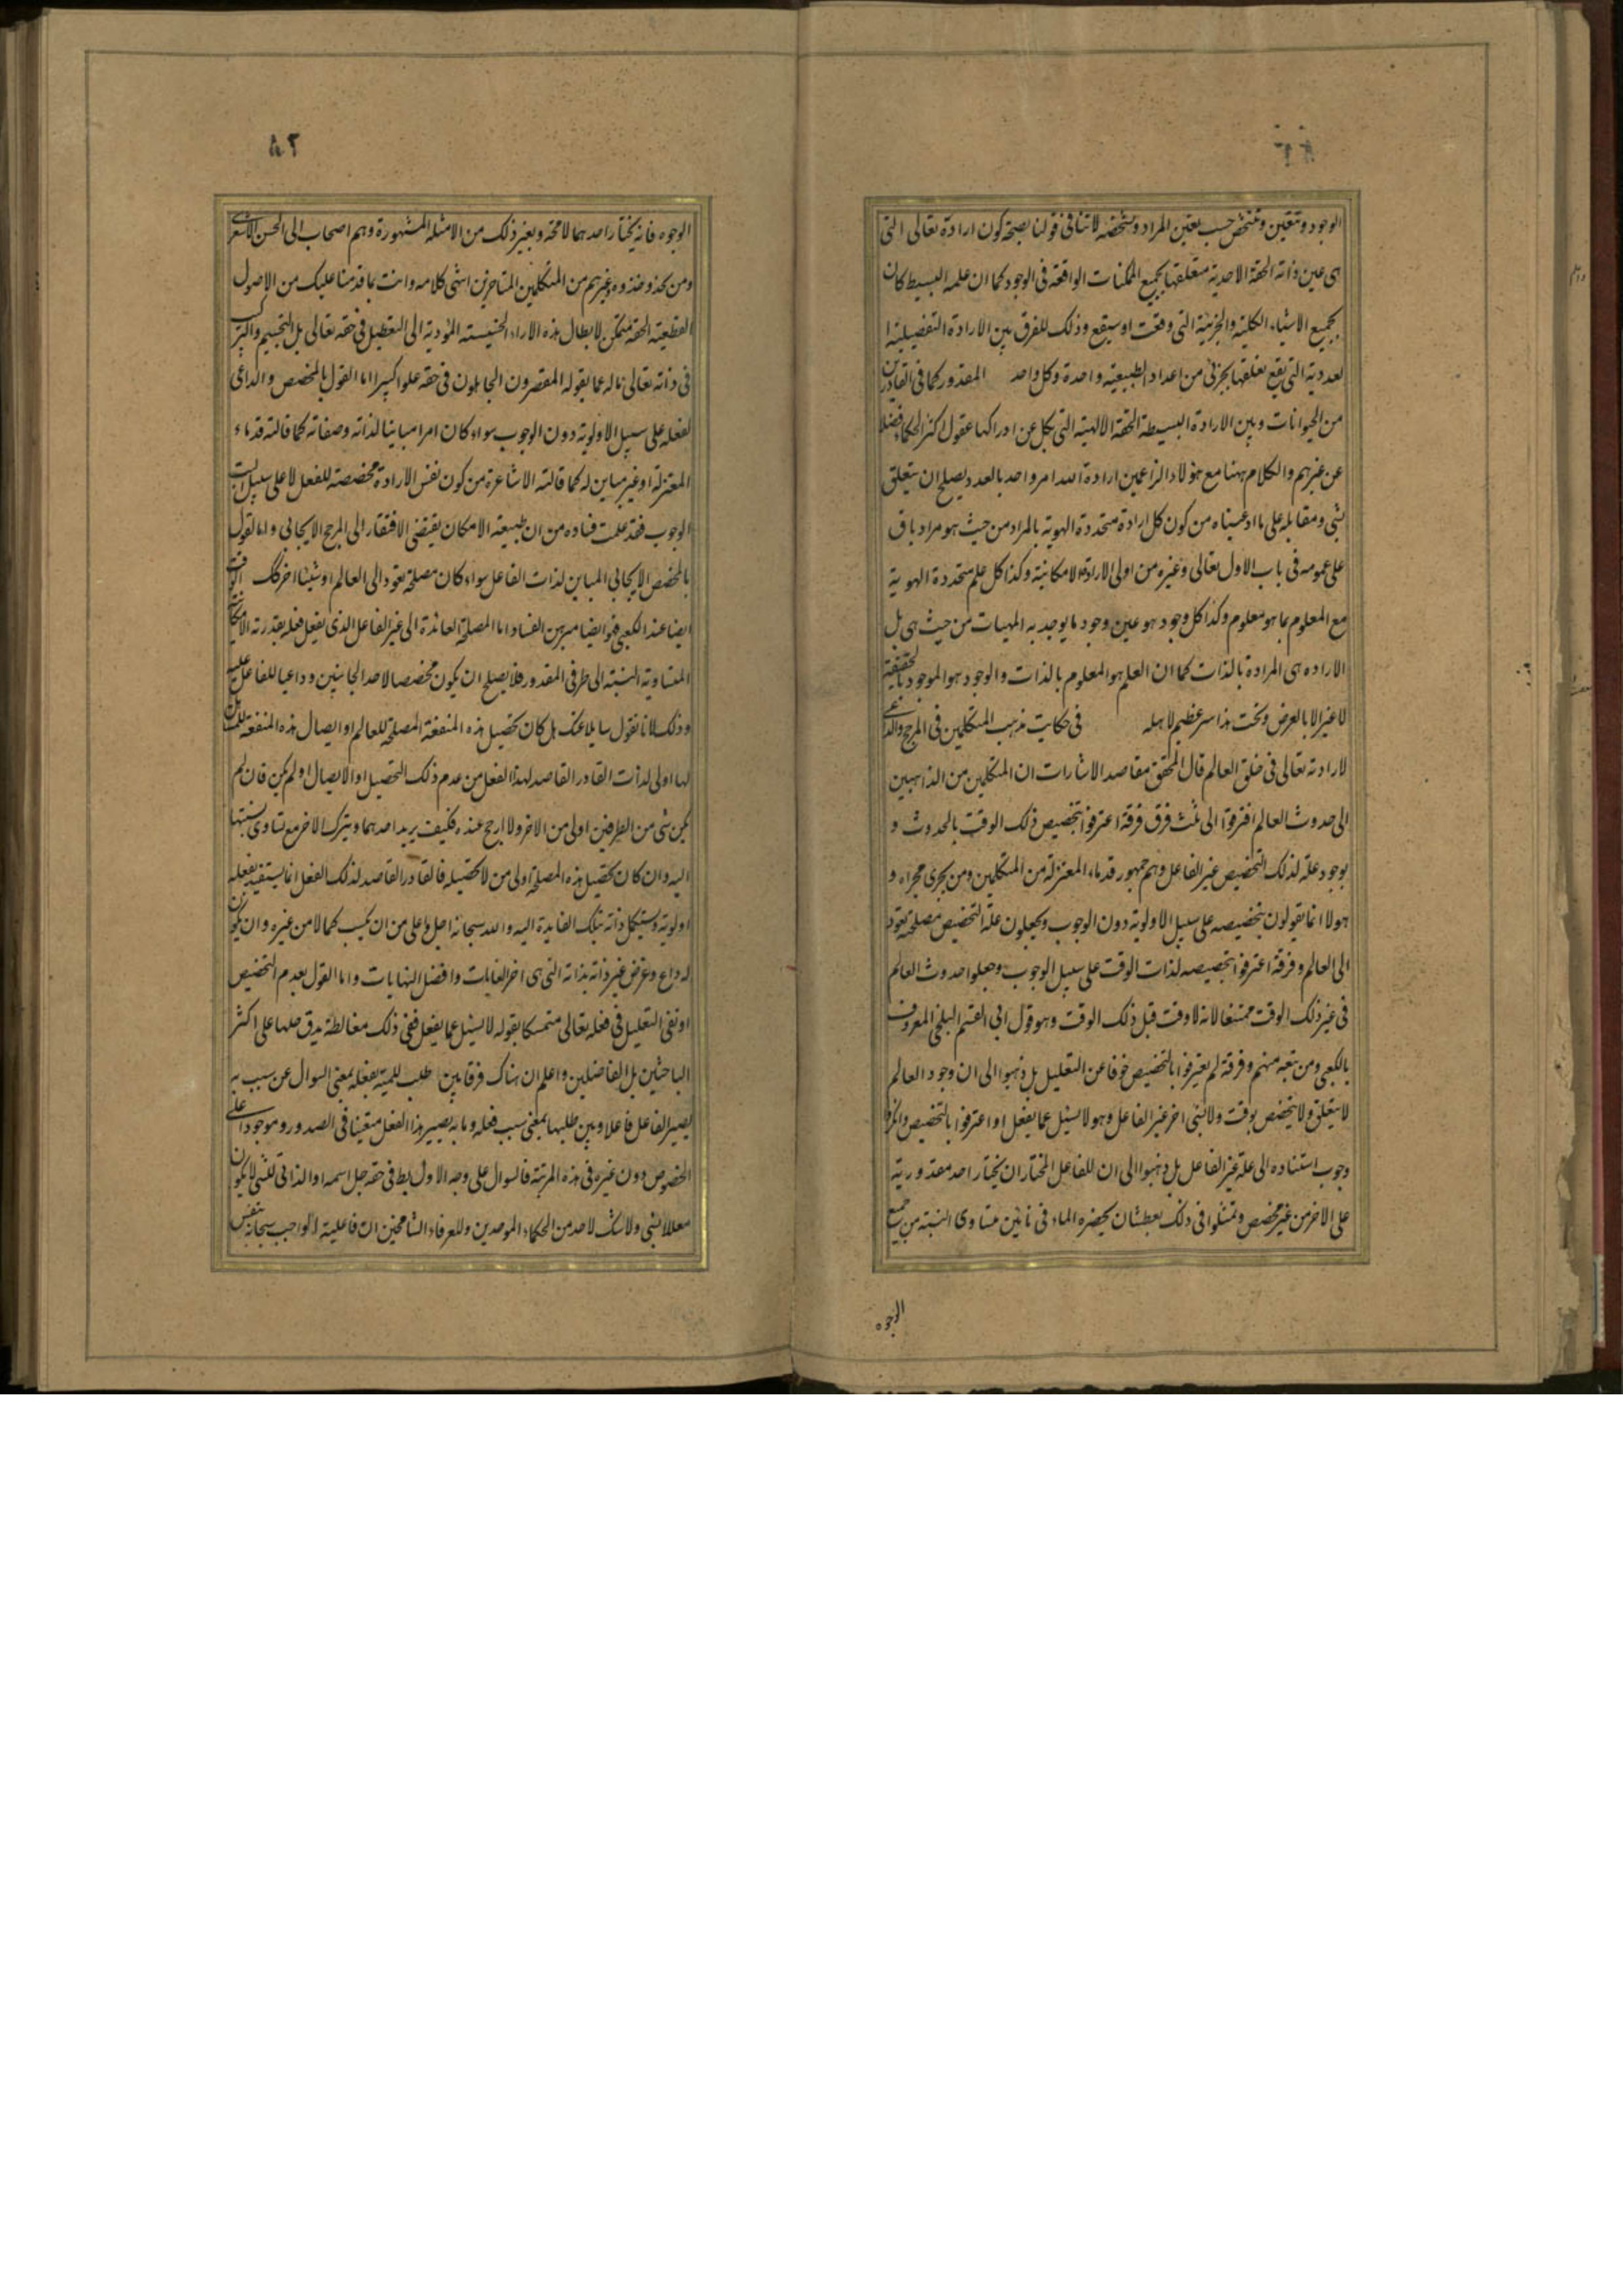 الوجود وتتعين وتتشخص حسب تعين المراد وتشخصه لا تنافى قولنا بصحة كون ارادة تعالى التى
هى عين ذاته الحقة الاحدية متعلقها بجميع الممكنات الواقعة فى الوجود كما ان علمه البسيط كان
بجميع الاشياء الكلية والجزئية التى وقعت او سيقع وذلك للفرق بين الارادة التفصيلية ا
لعددية التى يقع تعلقها بجزئى من اعداد الطبيعية واحدة وكل واحد المقدور كما فى القادرين
من الحيوانات وبين الارادة البسيطة الحقة الالهية التى يكل عن ادراكها عقول اكثر الحكماء فضلا
عن غيرهم والكلام ههنا مع هؤلاء الزاعمين ارادة الله امر واحد بالعدد يصلح ان يتعلق
بشى ومقابله على ما ادعيناه من كون كل ارادة متحددة الهوية بالمراد من حيث هو مراد باق
على عمومه فى باب الاول تعالى وغيره من اولى الارادة الامكانية وكذا كل علم متحددة الهوية
مع المعلوم بما هو معلوم وكذا كل وجود هو عين وجود ما يوجد به المهيات من حيث هى بل
الاراده هى المرادة بالذات كما ان العلم هو المعلوم بالذات والوجود هو الموجود بالحقيقة
لا غير الا بالعرض وتحت هذا سر عظيم لاهله فى حكايت مذهب المتكلمين فى المرجح والداعى
لارادته تعالى فى خلق العالم قال المحقق مقاصد الاشارات ان المتكلمين من الذاهبين
الى حدوث العالم افترقوا الى ثلث فرق فرقة اعترفوا بتخصيص ذلك الوقت بالحدوث و
بوجود علة لذلك التخصيص غير الفاعل وهم جمهور قدماء المعتزلة من المتكلمين ومن يجرى مجراه و
هولاء انما يقولون بتخصيصه على سبيل الاولوية دون الوجوب ويجعلون علة التخصيص مصلحة يعود
الى العالم وفرقة اعترفوا بتخصيصه لذات الوقت على سبيل الوجوب وجعلوا حدوث العالم
فى غير ذلك الوقت ممتنعا لانه لا وقت قبل ذلك الوقت وهو قول ابى القسم البلخى المعروف
بالكعبى ومن تبعه منهم وفرقة لم يعترفوا بالتخصيص خوفا عن التعليل بل ذهبوا الى ان وجود العالم
لا يتعلق ولا يتخصص بوقت ولا بشى اخر غير الفاعل وهو لا يسئل عما يفعل او اعترفوا بالتخصيص وانكروا
وجوب استناده الى علة غير الفاعل بل ذهبوا الى ان للفاعل المختار ان يختار احد مقدوريه
على الاخر من غير مخصص وتمثلوا فى ذلك بعطشان يحضره الماء فى انائين متساوى النسبة من جميع
الوجوه
٨٢
الوجوه فانه يختار احدهما لا محة وبغير ذلك من الامثلة المشهورة وهم اصحاب الى الحسن الاشعرى
ومن يحذو حذوه وغيرهم من المتكلمين المتاخرين انتهى كلامه وانت بما قدمنا عليك من الاصول
القطعية الحقة متمكن لابطال هذه الاراء الخسيسه المؤدية الى التعطيل فى حقه تعالى بل التجسيم والتركيب
فى ذاته تعالى ذاته عما يقوله المقصرون الجاهلون فى حقه علوا كبيرا اما القول بالمخصص والداعى
لفعله على سبيل الاولوية دون الوجوب سواء كان امرا مباينا لذاته وصفاته كما قالته قدماء
المعتزلة او غير مباين له كما قالته الاشاعرة من كون نفس الارادة مخصصة للفعل لا على سبيل البت
الوجوب فقد علمت فساده من ان طبيعة الامكان يقتضى الافتقار الى المرجح الايجابى واما القول
بالمخصص الايجابى المباين لذات الفاعل سواء كان مصلحة تعود الى العالم او شيئا اخر كذات الوقت
ايضا عند الكعبى فهو ايضا مبرهن الفساد اما المصلحة العائدة الى غير الفاعل الذى يفعل فعله بقدرته الامكانية
المتساوية النسبة الى طرفى المقدور فلا يصلح ان يكون مخصصا لاحد الجانبين وداعيا للفاعل عليه
وذلك لانا نقول سايلا عنك هل كان تحصيل هذه المنفعة المصلحة للعالم او ايصال هذه المنفعة
لها اولى لذات القادر القاصد لهذا الفعل من عدم ذلك التحصيل او الايصال او لم يكن فان لم
يكن شى من الطرفين اولى من الاخر ولا ارجح عنده فكيف يريد احدهما ويترك الاخر مع تساوى نسبتها
اليه وان كان تحصيل هذه المصلحة اولى من لا تحصيله فالقادر القاصد لذلك الفعل انما يستفيد بفعله
اولوية ويستكمل ذاته بتلك الفايدة اليه والله سبحانه اجل واعلى من ان يكسب كمالا من غيره وان يكون
له داع وغرض غير ذاته بذاته التى هى اخر الغايات وافضل النهايات واما القول بعدم التخصيص
او نفى التعليل فى فعله تعالى متمسكا بقوله لا يسئل عما يفعل ففى ذلك مغالطة يدق حلها على اكثر
الباحثين بل الفاضلين واعلم ان هناك فرقا بين طلب للمية بفعله بمعنى السوال عن سبب به
يصير الفاعل فاعلا وبين طلبها بمعنى سبب فعله وما به يصير هذا الفعل متعينا فى الصدور وموجودا على
الخصوص دون غيره فى هذه المرتبة فالسوال على وجه الاول بط فى حقه جل اسمه او الذاتى للشى لا يكون
معللا بشى ولا شك لاحد من الحكماء الموحدين وللعرفاء الشامخين ان فاعلية الواجب سبحانه بنفس